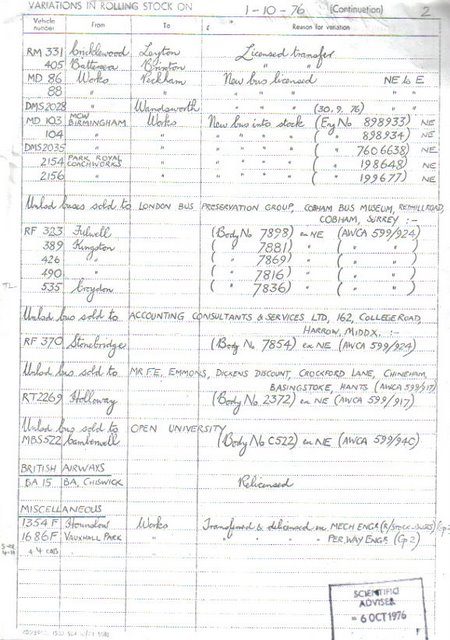 VARIATIONS IN ROLLING STOCK ON 1-10-76 (Continuation) 2
Vehicle number From To £ Reason for variation
RM 331 Cricklewood Leyton Licensed transfer
405 Battersea Brixton "
MD 86 Works Peckham New bus licensed NE to E
88 " " " " " " "
DMS2028 " Wandsworth " " " (30.9.76) " "
MD 103 MCW BIRMINGHAM Works New bus into stock (Eng No 898933) NE
104 " " " " " " ( " " 898934) NE
DMS2035 " " " " " " ( " " 7606638) NE
2154 PARK ROYAL COACHWORKS " " " " " ( " " 198648) NE
2156 " " " " " " ( " " 199677) NE
Unlsd buses sold to LONDON BUS PRESERVATION GROUP, COBHAM BUS MUSEUM, REDHILL ROAD,
COBHAM, SURREY :-
RF 323 Fulwell (Body No 7898) ex NE (AWCA 599/924)
389 Kingston ( " 7881) " ( " " )
426 " ( " 7869) " ( " " )
490 " ( " 7816) " ( " " )
535 Croydon ( " 7836) " ( " " )
Unlsd bus sold to ACCOUNTING CONSULTANTS & SERVICES LTD, 162, COLLEGE ROAD,
HARROW, MIDDX. :-
RF 370 Stonebridge (Body No 7854) ex NE (AWCA 599/924)
Unlsd bus sold to MR F.E. EMMONS, DICKENS DISCOUNT, CROCKFORD LANE, CHINEHAM,
BASINGSTOKE, HANTS (AWCA 599/917)
RT2269 Holloway (Body No 2372) ex NE (AWCA 599/917)
Unlsd bus sold to OPEN UNIVERSITY
MBS522 Camberwell (Body No C522) ex NE (AWCA 599/940)
BRITISH AIRWAYS
BA 15 BA, CHISWICK Relicensed
MISCELLANEOUS
1354 F Hounslow Works Transferred & delicensed ex MECH ENGR
1686 F VAUXHALL PARK " " " " PER.WAY ENGR (Gp 2)
SCIENTIFIC
ADVISER
- 6 OCT 1976